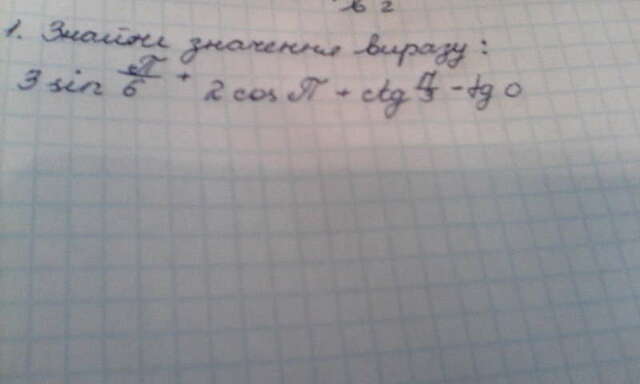 1. Знайти значення виразу :
3 sin π/6 + 2 cos π + ctg π/3 - tg 0